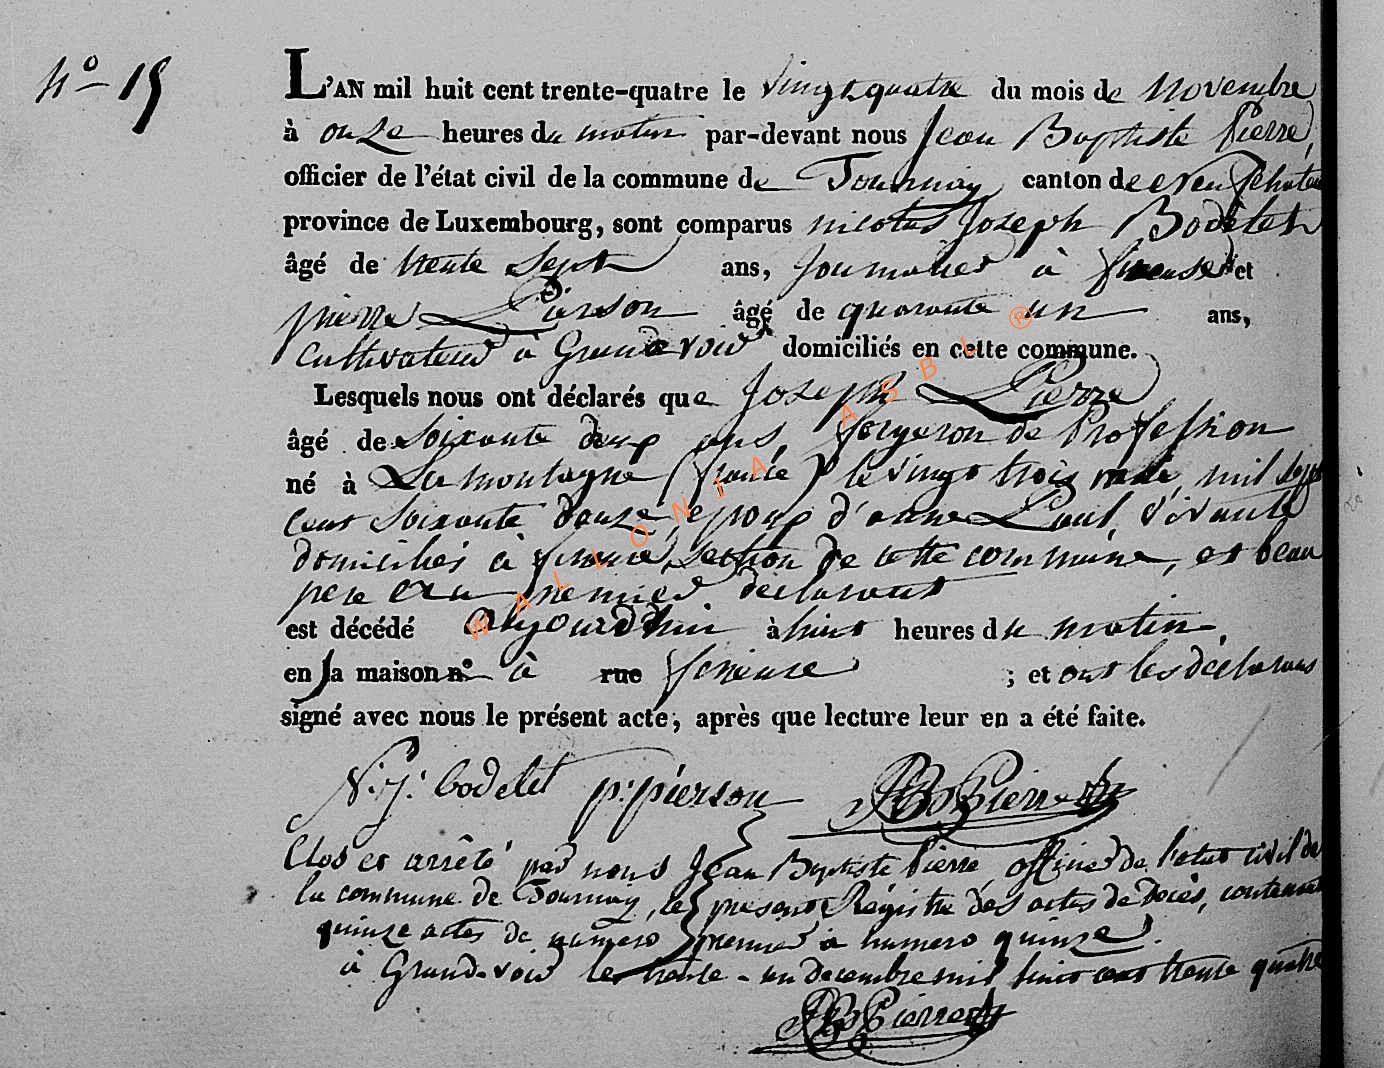 N° 15
L'AN mil huit cent trente-quatre le vingt quatre du mois de novembre
à onze heures du matin par-devant nous Jean Baptiste Pierre,
officier de l'état civil de la commune de Tournay canton de Neufchateau
province de Luxembourg, sont comparus nicolas Joseph Bodelet
âgé de trente Sept ans, Journalier à et
pierre Pierson âgé de quarante un ans,
cultivateur à Grandvoir domiciliés en cette commune.
Lesquels nous ont déclarés que Joseph Pierre
âgé de Soixante deux ans, forgeron de Profession
né à La montagne le vingt trois mai, mil Sept
Cent Soixante douze, epoux d'anne vivante
domiciliés à Section de cette commune, et beau
pere du premier déclarant
est décédé aujourd'hui à huit heures du matin,
en Sa maison n° à rue ; et ont les déclarans
signé avec nous le présent acte, après que lecture leur en a été faite.
N. J. bodelet p. pierson JB Pierre
Clos et arrêté par nous Jean Baptiste Pierre officier de l'etat civil de
la commune de Tournay, le present Régistre des actes de Décès, contenant
quinze actes de numero premier à numero quinze.
à Grand-voir le trente-un decembre mil huit cent trente quatre
JB Pierre
WALLONIA ASBL ®